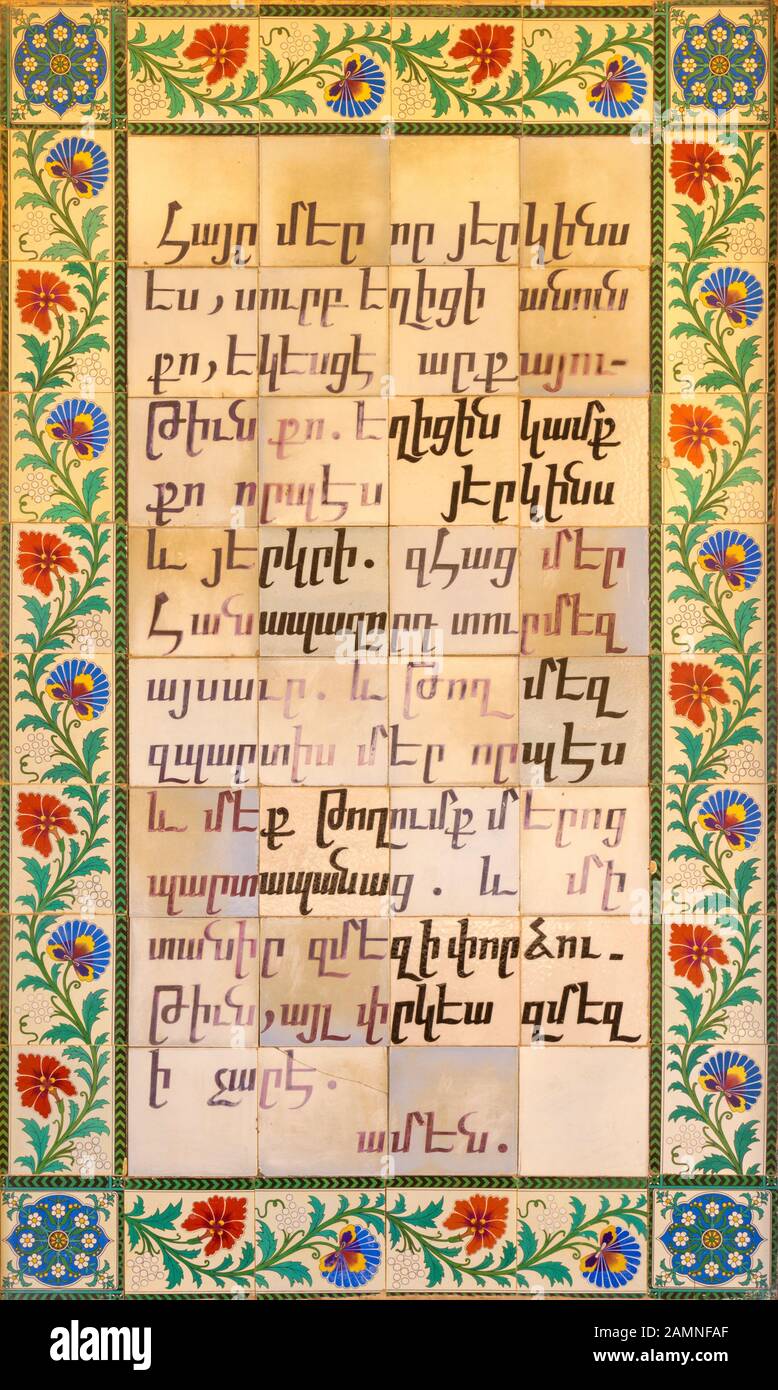 Հայր մէր որ յէրկինս
Էս, սուրբ էղիցի անուն
քո, էկէսցէ արքայու-
թիւն քո. էղիցին կամք
քո որպէս յէրկինս
և յէրկրի. զՀաց մէր
Հանապազորդ տուր մէզ
այսաւր. և թող մէզ
զպարտիս մէր որպէս
և մէք թողումք մէրոց
պարտապանաց. և մի
տանիր զմէզ ի փորձու-
թիւն, այլ փրկէա զմէզ
ի չարէ.
ամէն.
alamy
Image ID: 2AMNFAF
www.alamy.com